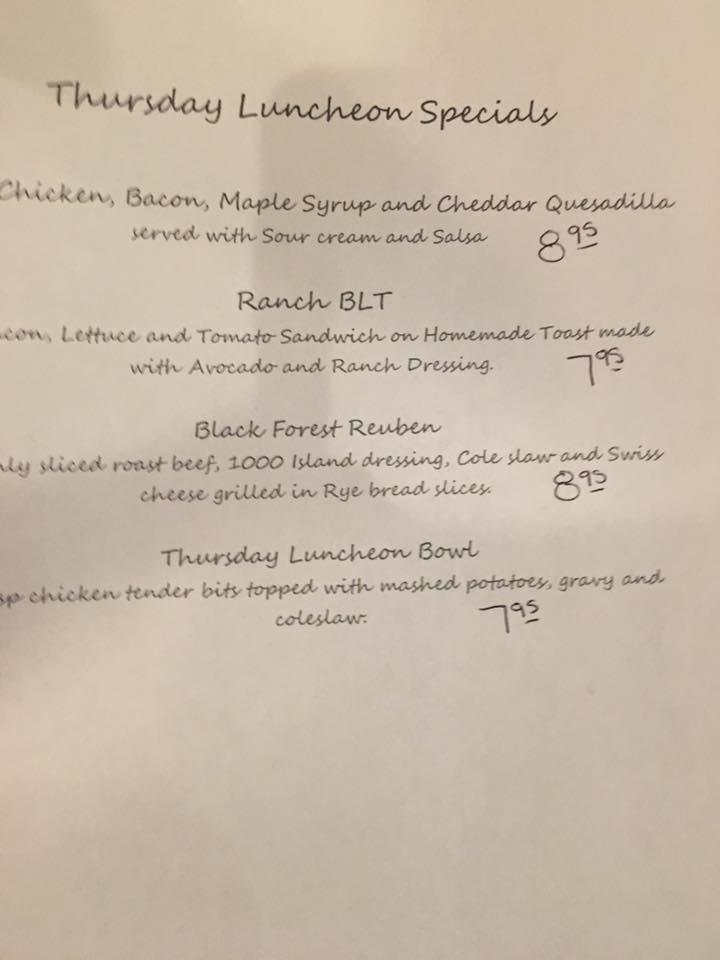 Thursday Luncheon Specials
Chicken, Bacon, Maple Syrup and Cheddar Quesadilla
served with Sour cream and Salsa 8 95
Ranch BLT
Lettuce and Tomato Sandwich on Homemade Toast made
with Avocado and Ranch Dressing. 7 95
Black Forest Reuben
sliced roast beef, 1000 Island dressing, Cole slaw and Swiss
cheese grilled in Rye bread slices. 8 95
Thursday Luncheon Bowl
chicken tender bits topped with mashed potatoes, gravy and
coleslaw. 7 95